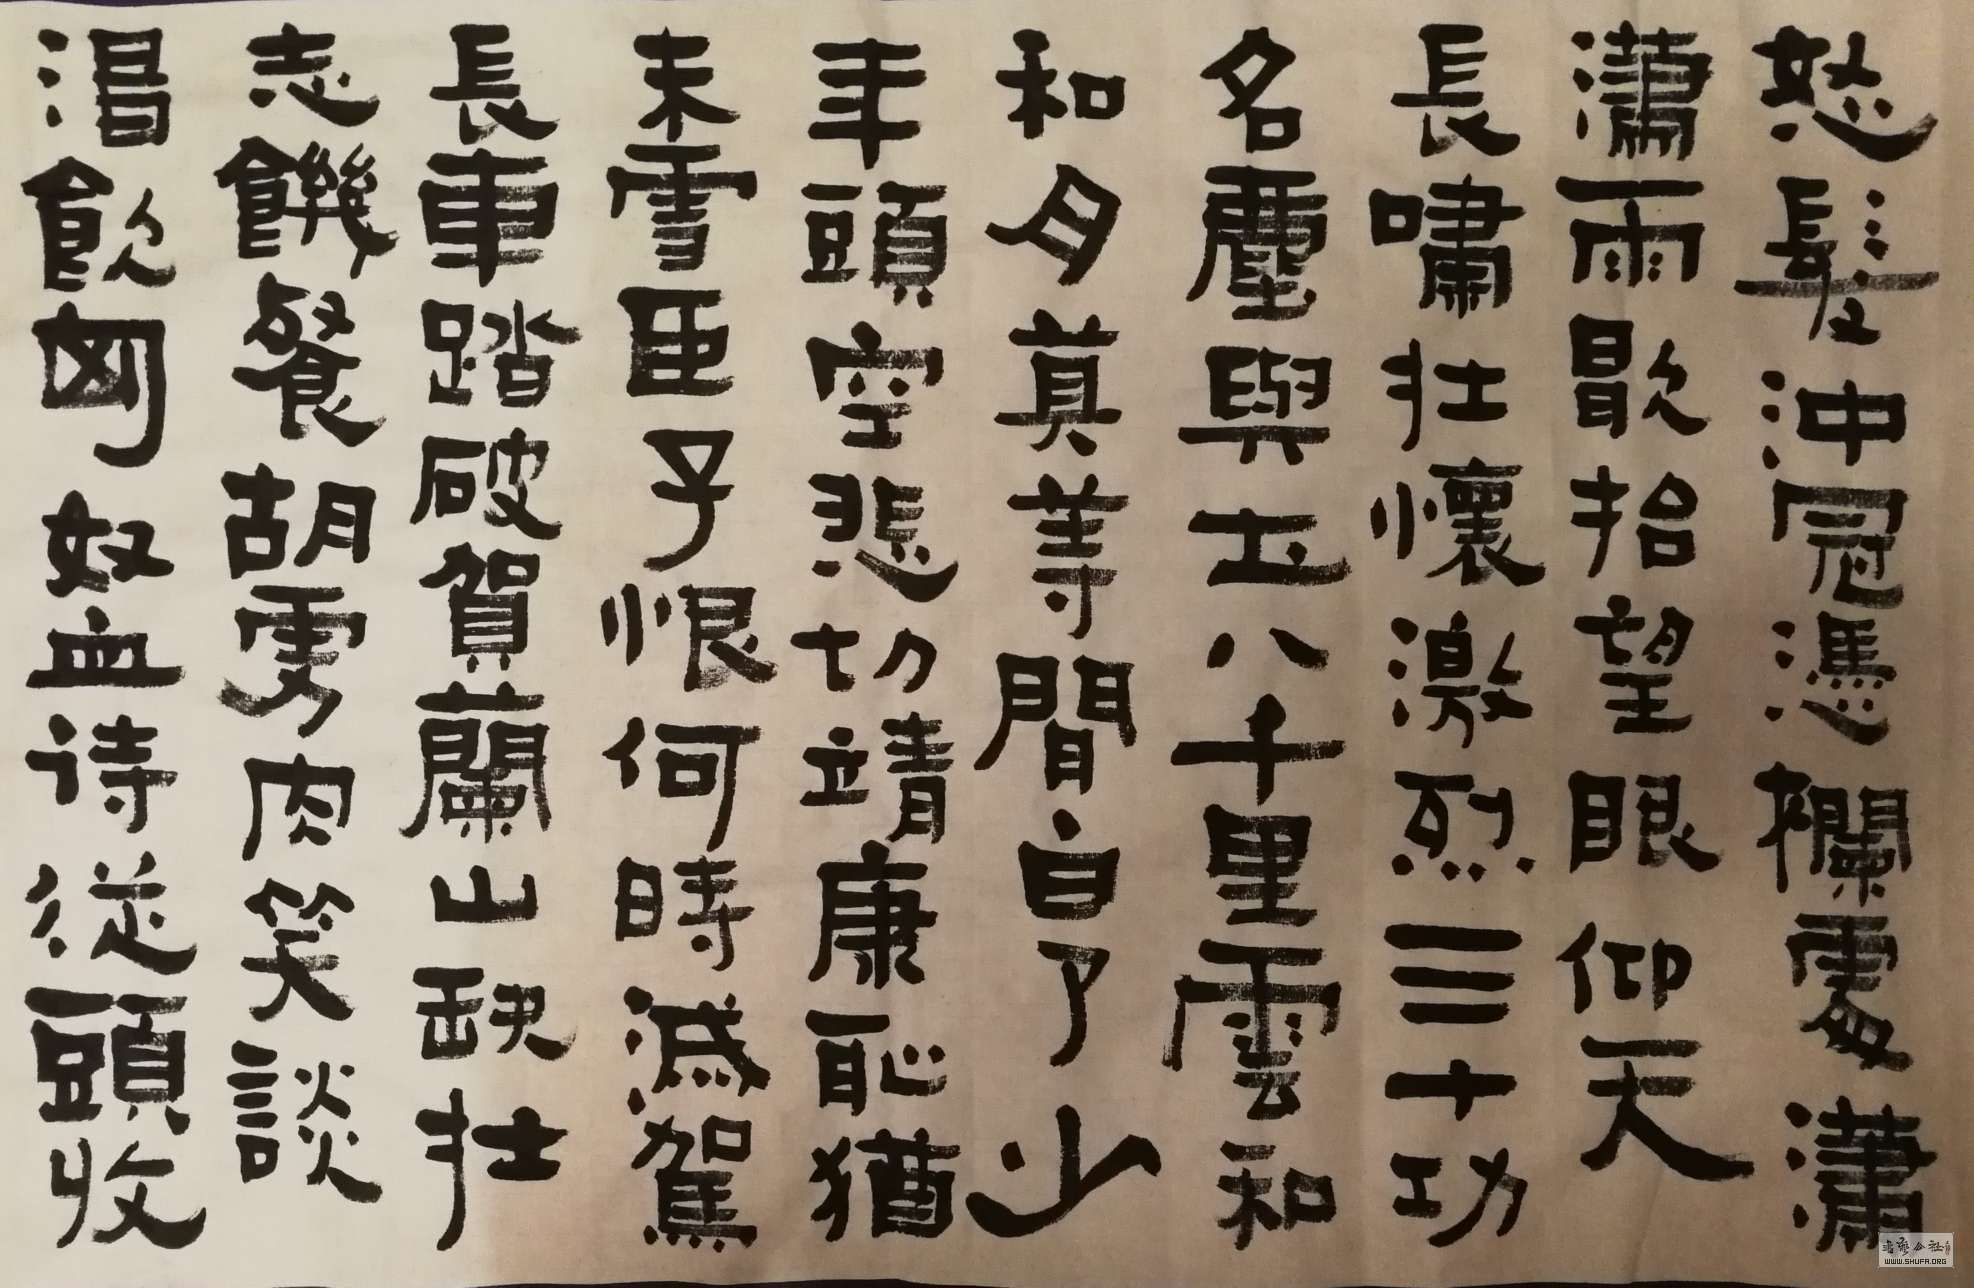 怒髮沖冠憑欄處瀟
瀟雨歇抬望眼仰天
長嘯壯懷激烈三十功
名塵與土八千里雲和
和月莫等閒白了少
年頭空悲切靖康恥猶
未雪臣子恨何時滅駕
長車踏破賀蘭山缺壯
志饑餐胡虜肉笑談
渴飲匈奴血诗從頭收
WWW.SHUFA.ORG